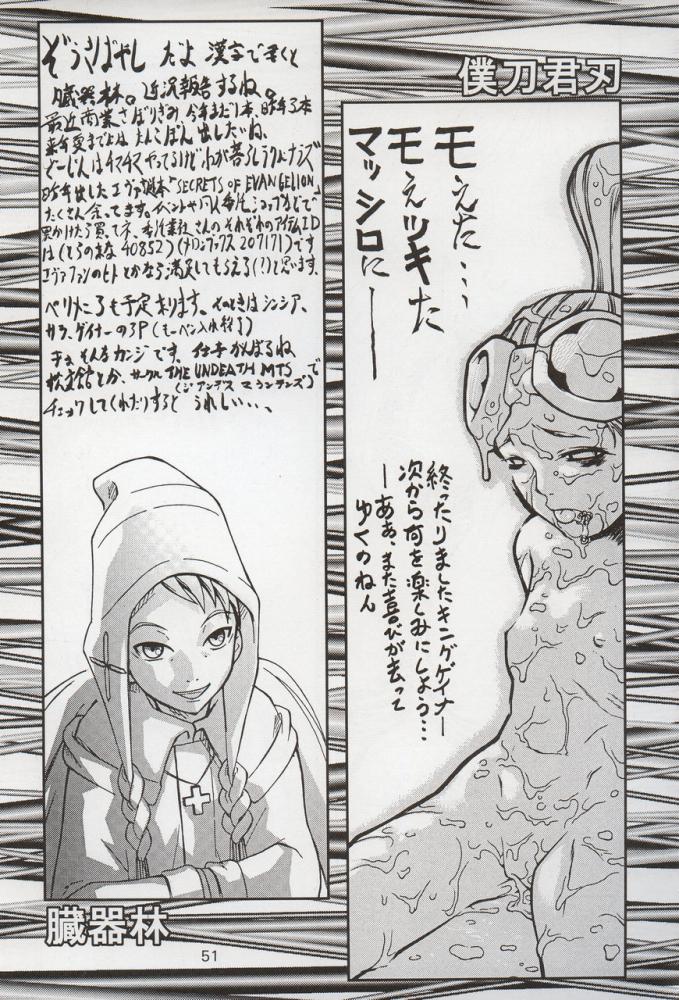 僕刀君刃
モえた…
モぇツキた
マッシロに――
終ったりましたキングゲイナー
次から何を楽しみにしよう…
―あぁ、また喜びが去って
ゆくのねん
ぞうきばやし だよ 漢字で書くと
臓器林。近況報告するね。
最近商業さぼりぎみ、今年まだ1本、昨年3本
来年夏までには たんこぼん 出したいね、
どーじんはチマチマやってるけど
昨年出したエヴァ 本「SECRETS OF EVANGELION」
たくさん余ってます。イベントや
見かけたら買ってネ、 さんのそれぞれのアイテムID
は(とらのあな 40852)( 207171)です
エヴァファンのヒトとかなら満足してもらえる(?)と思います。
ペリメニ3も予定あります。そのときはシンシア、
サラ、ゲイナーの3P
まぁ そんなカンジです。仕事がんばるね
松文館とか、サークル THE UNDEATH MTS で
(ジ アンデス マウンテンズ)
チェックしてくれたりすると うれしい…、
臓器林
51